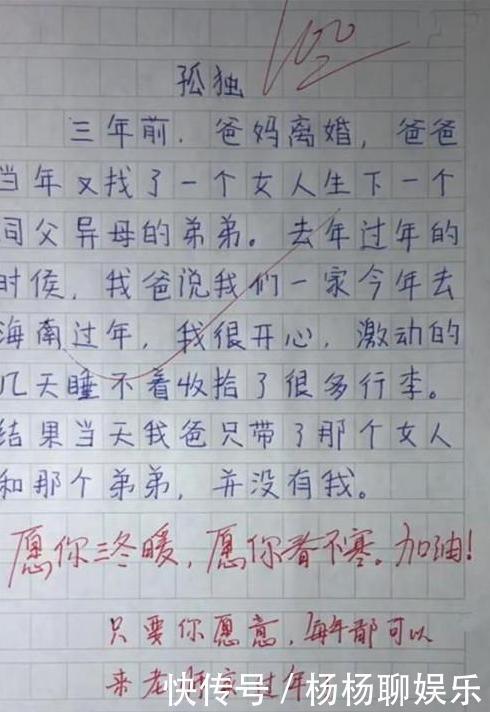 100
孤独
三年前.爸妈离婚,爸爸
当年又找了一个女人生下一个
同父异母的弟弟。去年过年的
时侯,我爸说我们一家今年去
海南过年,我很开心,激动的
几天睡不着收拾了很多行李。
结果当天我爸只带了那个女人
和那个弟弟,并没有我。
愿你三冬暖,愿你春不寒。加油!
只要你愿意,每年都可以
来老师家过年
快传号/杨杨聊娱乐